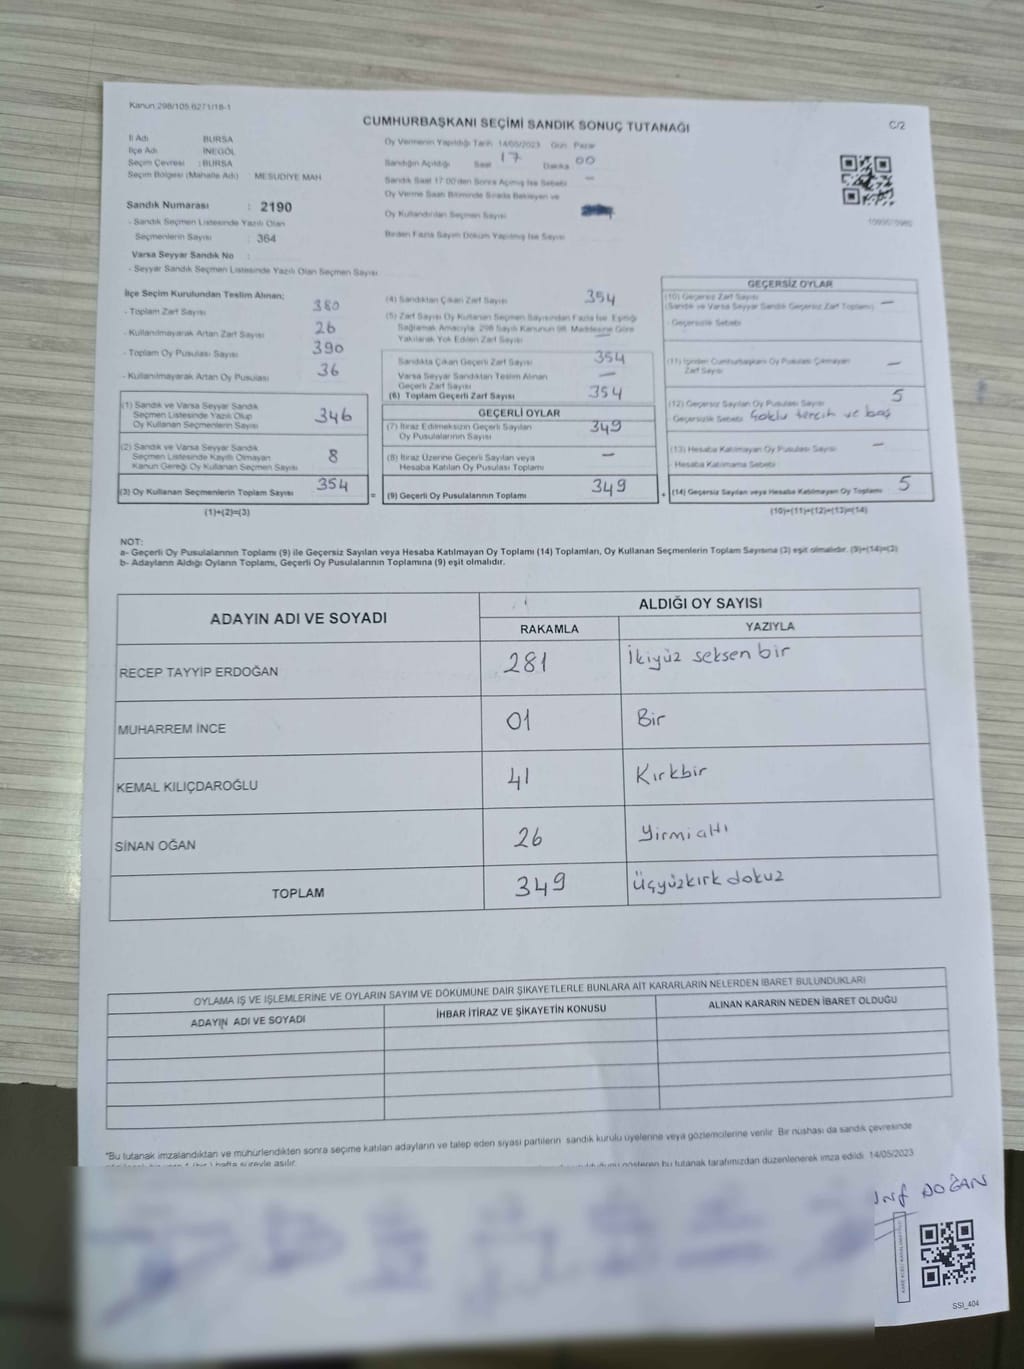 Kanun:298/105,6271/18-1
C/2
CUMHURBAŞKANI SEÇİMİ SANDIK SONUÇ TUTANAĞI
İl Adı BURSA
İlçe Adı İNEGÖL
Seçim Çevresi : BURSA
Seçim Bölgesi (Mahalle Adı) MESUDİYE MAH
Sandık Numarası : 2190
- Sandık Seçmen Listesinde Yazılı Olan
Seçmenlerin Sayısı : 364
Varsa Seyyar Sandık No
- Seyyar Sandık Seçmen Listesinde Yazılı Olan Seçmen Sayısı
Oy Vermenin Yapıldığı Tarih 14/05/2023 Gün Pazar
Sandığın Açıldığı Saat 17 Dakika 00
Sandık Saat 17:00'den Sonra Açılmış İse Sebebi –
Oy Verme Saati Bitiminde Sırada Bekleyen ve
Oy Kullandırılan Seçmen Sayısı
Birden Fazla Sayım Döküm Yapılmış İse Sayısı
İlçe Seçim Kurulundan Teslim Alınan;
- Toplam Zarf Sayısı 380
- Kullanılmayarak Artan Zarf Sayısı 26
- Toplam Oy Pusulası Sayısı 390
- Kullanılmayarak Artan Oy Pusulası 36
(1) Sandık ve Varsa Seyyar Sandık
Seçmen Listesinde Yazılı Olup
Oy Kullanan Seçmenlerin Sayısı 346
(2) Sandık ve Varsa Seyyar Sandık
Seçmen Listesinde Kayıtlı Olmayan
Kanun Gereği Oy Kullanan Seçmen Sayısı 8
(3) Oy Kullanan Seçmenlerin Toplam Sayısı 354
(1)+(2)=(3)
(4) Sandıktan Çıkan Zarf Sayısı 354
(5) Zarf Sayısı Oy Kullanan Seçmen Sayısından Fazla İse Eşitliği
Sağlamak Amacıyla, 298 Sayılı Kanunun 98. Maddesine Göre
Yakılarak Yok Edilen Zarf Sayısı –
Sandıkta Çıkan Geçerli Zarf Sayısı 354
Varsa Seyyar Sandıktan Teslim Alınan
Geçerli Zarf Sayısı –
(6) Toplam Geçerli Zarf Sayısı 354
GEÇERLİ OYLAR
(7) İtiraz Edilmeksizin Geçerli Sayılan
Oy Pusulalarının Sayısı 349
(8) İtiraz Üzerine Geçerli Sayılan veya
Hesaba Katılan Oy Pusulası Toplamı –
= (9) Geçerli Oy Pusulalarının Toplamı 349
GEÇERSİZ OYLAR
(10) Geçersiz Zarf Sayısı
(Sandık ve Varsa Seyyar Sandık Geçersiz Zarf Toplamı) –
- Geçersizlik Sebebi
(11) İçinden Cumhurbaşkanı Oy Pusulası Çıkmayan
Zarf Sayısı –
(12) Geçersiz Sayılan Oy Pusulası Sayısı 5
Geçersizlik Sebebi Çoklu tercih ve boş
(13) Hesaba Katılmayan Oy Pusulası Sayısı –
- Hesaba Katılmama Sebebi
+ (14) Geçersiz Sayılan veya Hesaba Katılmayan Oy Toplamı 5
(10)+(11)+(12)+(13)=(14)
NOT:
a- Geçerli Oy Pusulalarının Toplamı (9) ile Geçersiz Sayılan veya Hesaba Katılmayan Oy Toplamı (14) Toplamları, Oy Kullanan Seçmenlerin Toplam Sayısına (3) eşit olmalıdır. (9)+(14)=(3)
b- Adayların Aldığı Oyların Toplamı, Geçerli Oy Pusulalarının Toplamına (9) eşit olmalıdır.
ADAYIN ADI VE SOYADI ALDIĞI OY SAYISI
RAKAMLA YAZIYLA
RECEP TAYYİP ERDOĞAN 281 İkiyüz seksen bir
MUHARREM İNCE 01 Bir
KEMAL KILIÇDAROĞLU 41 Kırkbir
SİNAN OĞAN 26 Yirmialtı
TOPLAM 349 Üçyüzkırk dokuz
OYLAMA İŞ VE İŞLEMLERİNE VE OYLARIN SAYIM VE DÖKÜMÜNE DAİR ŞİKAYETLERLE BUNLARA AİT KARARLARIN NELERDEN İBARET BULUNDUKLARI
ADAYIN ADI VE SOYADI İHBAR İTİRAZ VE ŞİKAYETİN KONUSU ALINAN KARARIN NEDEN İBARET OLDUĞU
*Bu tutanak imzalandıktan ve mühürlendikten sonra seçime katılan adayların ve talep eden siyasi partilerin sandık kurulu üyelerine veya gözlemcilerine verilir. Bir nüshası da sandık çevresinde
hafta süreyle asılır. gösteren bu tutanak tarafımızdan düzenlenerek imza edildi. 14/05/2023
DOĞAN
SSI_404